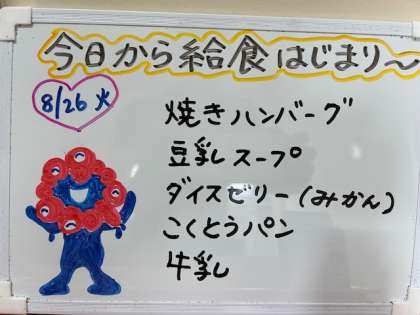 今日から給食はじまり〜
8/26 火
焼きハンバーグ
豆乳スープ
ダイスゼリー(みかん)
こくとうパン
牛乳